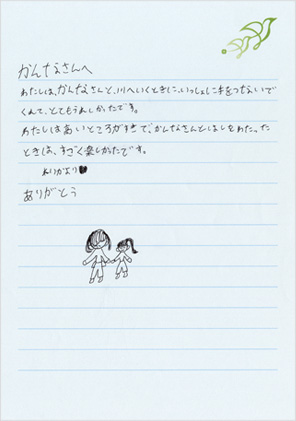 かんなさんへ
わたしは、かんなさんと、川へいくときに、いっしょに手をつないで
くれて、とてもうれしかったです。
わたしは高いところがすきで、かんなさんとはしをわたった
ときは、すごく楽しかったです。
れいかより♥
ありがとう